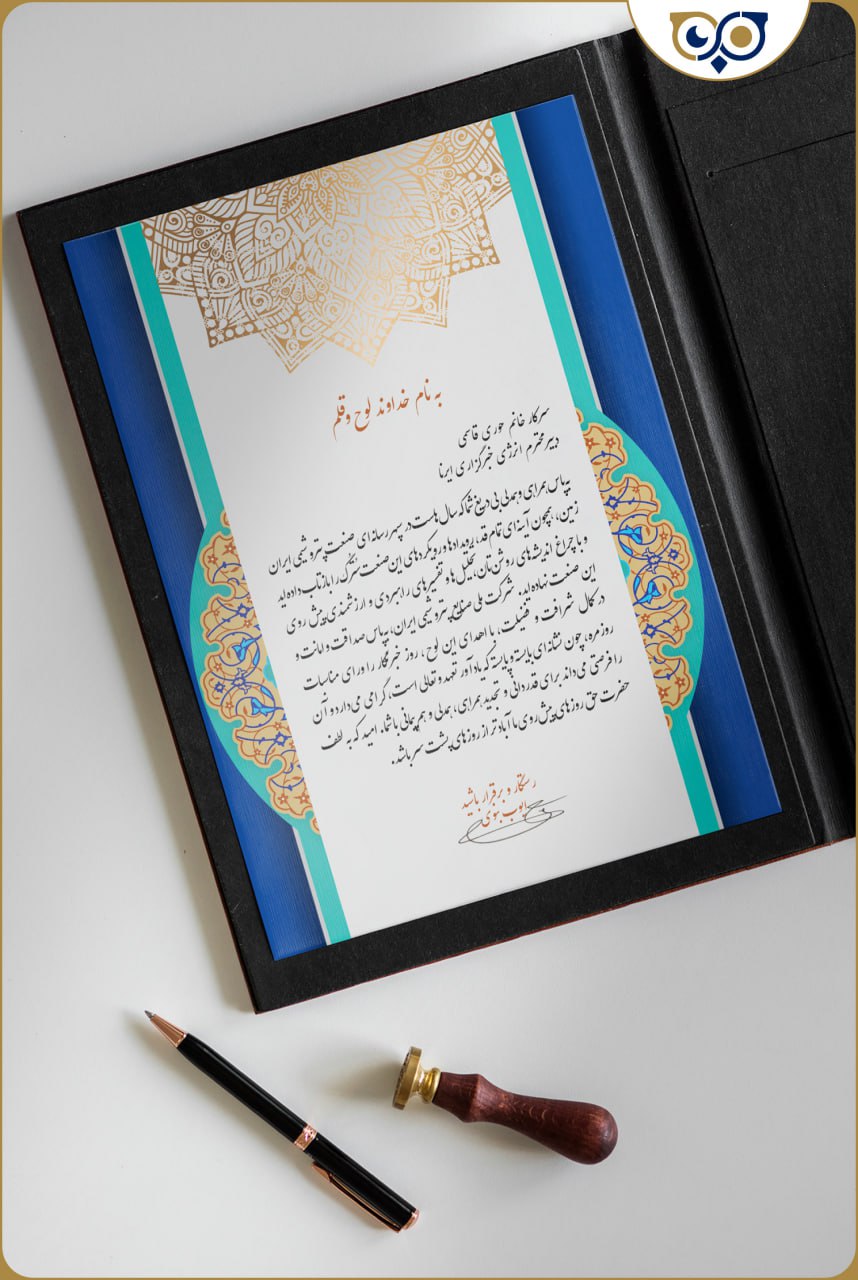 به نام خداوند لوح و قلم
سرکار خانم حوری قاسمی
دبیر محترم انرژی خبرگزاری ایرنا
به پاس همراهی و همدلی بی دریغ شما که سال هاست در سپهر رسانه ای صنعت پتروشیمی ایران
زمین، همچون آینه ای تمام قد، رویدادها و رویکردهای این صنعت سترگ را بازتاب داده اید
و با چراغ اندیشه های روشن تان، تحلیل ها و تفسیرهای راهبردی و ارزشمندی پیش روی
این صنعت نهاده اید. شرکت ملی صنایع پتروشیمی ایران، به پاس صداقت و امانت و
در کمال شرافت و فضیلت، با اهدای این لوح، روز خبرنگار را ورای مناسبات
روزمره، چون نشانه ای بایسته و شایسته که یادآور تعهد و تعالی است، گرامی می دارد و آن
را فرصتی می داند برای قدردانی و تجدید همراهی، همدلی و هم پیمانی با شما. امید که به لطف
حضرت حق روزهای پیش روی ما آبادتر از روزهای پشت سر باشد.
رستگار و برقرار باشید